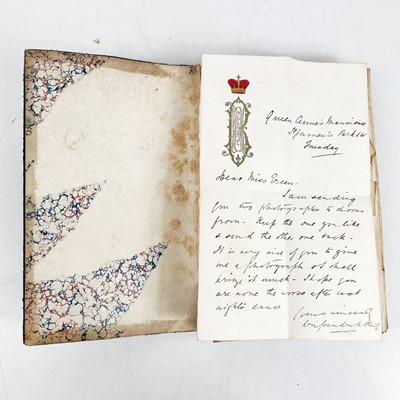 Queen Anne's Mansions
St James's Park SW
Tuesday
Dear Miss Green.
I am sending
you two photographs to choose
from. Keep the one you like
& send the other one back.
It is very nice of you to give
me a photograph & I shall
prize it much. I hope you
are none the worse after last
night's dance
Yours sincerely